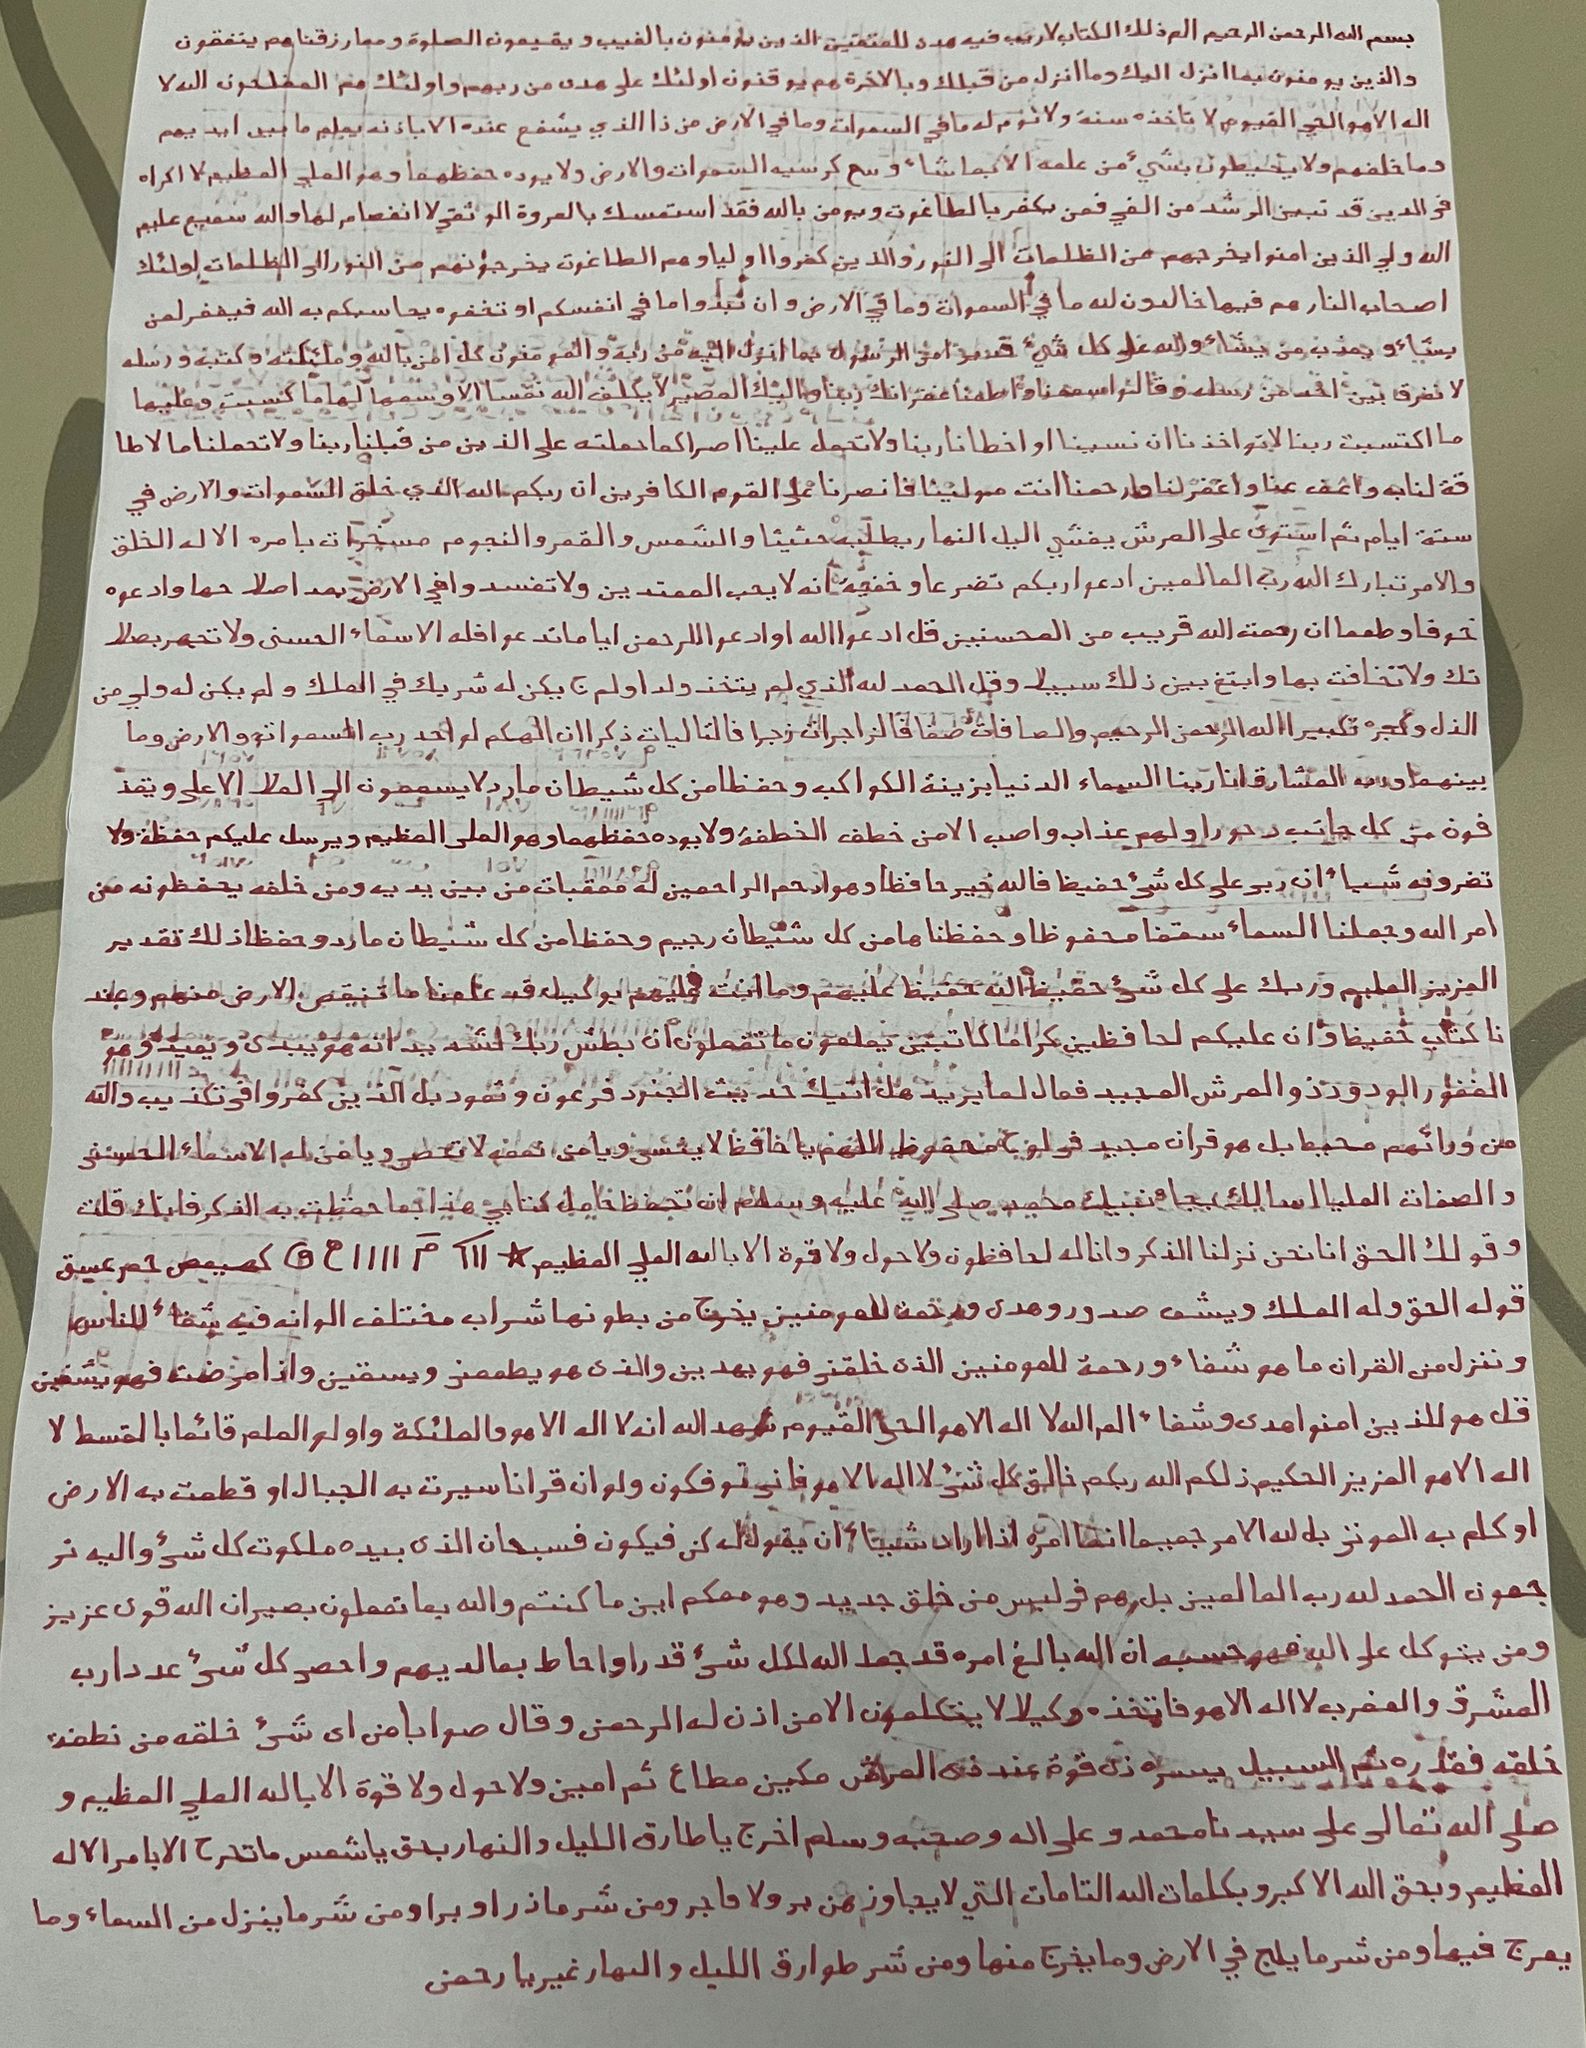 بسم الله الرحمن الرحيم الم ذلك الكتاب لا ريب فيه هدى للمتقين الذين يؤمنون بالغيب ويقيمون الصلوة ومما رزقناهم ينفقون
والذين يومنون بما انزل اليك وما انزل من قبلك وبالاخرة هم يوقنون اولئك على هدى من ربهم واولئك هم المفلحون الله لا
اله الا هو الحي القيوم لا تاخذه سنة ولا نوم له ما في السموات وما في الارض من ذا الذي يشفع عنده الا باذنه يعلم ما بين ايديهم
وما خلفهم ولا يحيطون بشيء من علمه الا بما شاء وسع كرسيه السموات والارض ولا يوده حفظهما وهو العلي العظيم لا اكراه
في الدين قد تبين الرشد من الغي فمن يكفر بالطاغوت ويومن بالله فقد استمسك بالعروة الوثقي لا انفصام لها والله سميع عليم
الله ولي الذين امنوا يخرجهم من الظلمات الى النور والذين كفروا اولياوهم الطاغوت يخرجونهم من النور الى الظلمات اولئك
اصحاب النار هم فيها خالدون لله ما في السموات وما في الارض وان تبدوا ما في انفسكم او تخفوه يحاسبكم به الله فيغفر لمن
يشاء ويعذب من يشاء والله على كل شيء قدير امن الرسول بما انزل اليه من ربه والمومنون كل امن بالله وملئكته وكتبه ورسله
لا نفرق بين احد من رسله وقالوا سمعنا واطعنا غفرانك ربنا واليك المصير لا يكلف الله نفسا الا وسعها لها ما كسبت وعليها
ما اكتسبت ربنا لا تواخذنا ان نسينا او اخطانا ربنا ولا تحمل علينا اصرا كما حملته على الذين من قبلنا ربنا ولا تحملنا ما لا طا
قة لنا به واعف عنا واغفر لنا وارحمنا انت مولينا فانصرنا على القوم الكافرين ان ربكم الله الذي خلق السموات والارض في
ستة ايام ثم استوى على العرش يغشي اليل النهار يطلبه حثيثا والشمس والقمر والنجوم مسخرات بامره الا له الخلق
والامر تبارك الله رب العالمين ادعوا ربكم تضرعا وخفية انه لا يحب المعتدين ولا تفسدوا في الارض بعد اصلاحها وادعوه
خوفا وطمعا ان رحمت الله قريب من المحسنين قل ادعوا الله او ادعوا الرحمن ايا ما تدعوا فله الاسماء الحسنى ولا تجهر بصلا
تك ولا تخافت بها وابتغ بين ذلك سبيلا وقل الحمد لله الذي لم يتخذ ولدا ولم يكن له شريك في الملك ولم يكن له ولي من
الذل وكبره تكبيرا الله الرحمن الرحيم والصافات صفا فالزاجرات زجرا فالتاليات ذكرا ان الهكم لواحد رب السموات والارض وما
بينهما ورب المشارق انا زينا السماء الدنيا بزينة الكواكب وحفظا من كل شيطان مارد لا يسمعون الى الملا الاعلى ويقذ
فون من كل جانب دحورا ولهم عذاب واصب الا من خطف الخطفة ولا يوده حفظهما وهو العلى العظيم ويرسل عليكم حفظة ولا
تضرونه شياء ان ربى على كل شئ حفيظ فالله خير حافظا وهو ارحم الراحمين له معقبات من بين يديه ومن خلفه يحفظونه من
امر الله وجعلنا السماء سقفا محفوظا وحفظناها من كل شيطان رجيم وحفظا من كل شيطان مارد وحفظا ذلك تقدير
العزيز العليم وربك على كل شئ حفيظ الله حفيظ عليهم وما انت عليهم بوكيل قد علمنا ما تنقص الارض منهم وعند
نا كتاب حفيظ وان عليكم لحافظين كراما كاتبين يعلمون ما تفعلون ان بطش ربك لشديد انه هو يبدى ويعيد وهو
الغفور الودود ذو العرش المجيد فعال لما يريد هل اتيك حديث الجنود فرعون وثمود بل الذين كفروا فى تكذيب والله
من ورائهم محيط بل هو قران مجيد فى لوح محفوظ اللهم يا حافظ لا ينسى ويا من نعمه لا تحصى ويا من له الاسماء الحسنى
والصفات العليا اسالك بجاه نبيك محمد صلى الله عليه وسلم ان تحفظ حامل كتابي هذا بما حفظت به الذكر فانك قلت
وقولك الحق انا نحن نزلنا الذكر وانا له لحافظون ولا حول ولا قوة الا بالله العلي العظيم كهيعص حم عسق
قوله الحق وله الملك ويشف صدور وهدى ورحمة للمومنين يخرج من بطونها شراب مختلف الوانه فيه شفاء للناس
وننزل من القران ما هو شفاء ورحمة للمومنين الذى خلقنى فهو يهدين والذى هو يطعمنى ويسقين واذا مرضت فهو يشفين
قل هو للذين امنوا هدى وشفاء الم الله لا اله الا هو الحى القيوم شهد الله انه لا اله الا هو والملئكة واولو العلم قائما بالقسط لا
اله الا هو العزيز الحكيم ذلكم الله ربكم خالق كل شئ لا اله الا هو فانى توفكون ولو ان قرانا سيرت به الجبال او قطعت به الارض
او كلم به الموتى بل لله الامر جميعا انما امره اذا اراد شيئا ان يقول له كن فيكون فسبحان الذى بيده ملكوت كل شئ واليه تر
جعون الحمد لله رب العالمين بل هم فى لبس من خلق جديد وهو معكم اين ما كنتم والله بما تعملون بصير ان الله قوى عزيز
ومن يتوكل على الله فهو حسبه ان الله بالغ امره قد جعل الله لكل شئ قدرا واحاط بما لديهم واحصى كل شئ عددا رب
المشرق والمغرب لا اله الا هو فاتخذه وكيلا لا يتكلمون الا من اذن له الرحمن وقال صوابا من اى شئ خلقه من نطفة
خلقه فقدره ثم السبيل يسره ذى قوة عند ذى العرش مكين مطاع ثم امين ولا حول ولا قوة الا بالله العلي العظيم و
صلى الله تعالى على سيدنا محمد وعلى اله وصحبه وسلم اخرج يا طارق الليل والنهار بحق يا شمس ما تحرج الا بامر الاله
العظيم وبحق الله الاكبر وبكلمات الله التامات التي لا يجاوزهن بر ولا فاجر ومن شر ما ذرا وبرا ومن شر ما ينزل من السماء وما
يعرج فيها ومن شر ما يلج في الارض وما يخرج منها ومن شر طوارق الليل والنهار غير يا رحمن